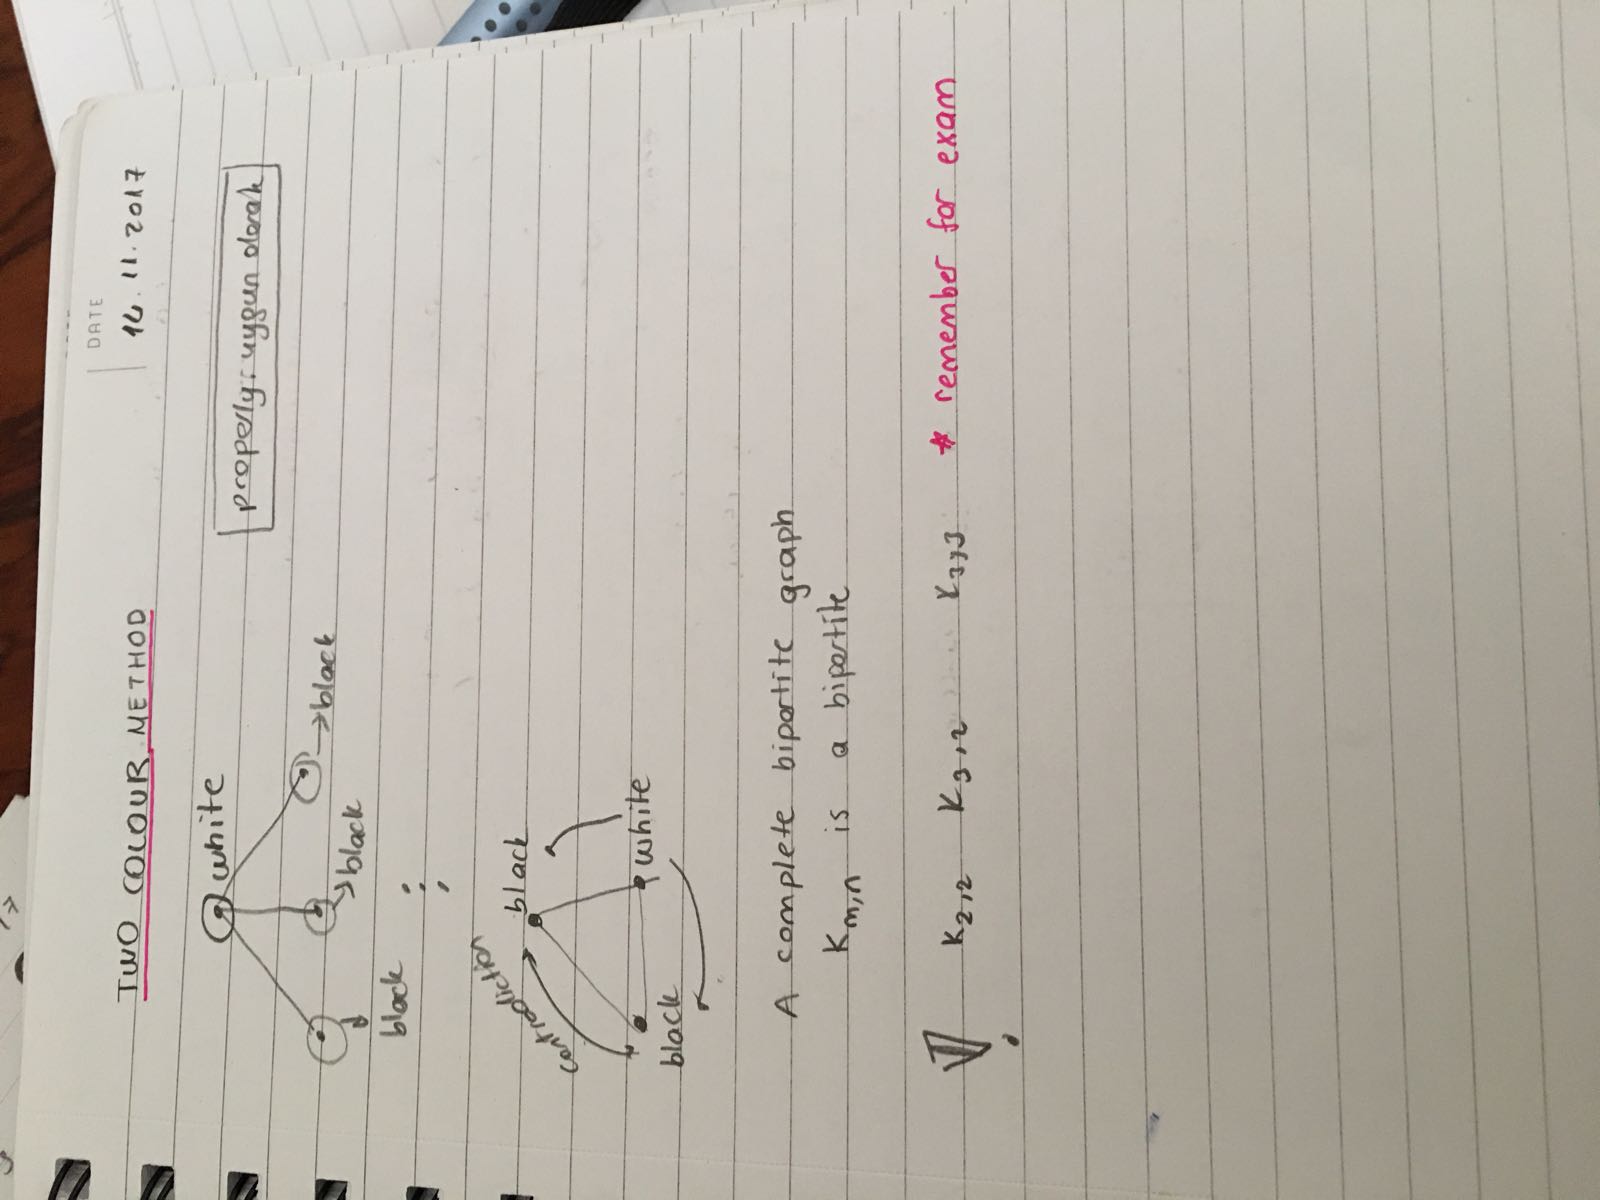 DATE
TWO COLOUR METHOD
14.11.2017
white
properly: uygun olarak
black
black
black
contradiction
black
white
black
A complete bipartite graph
Km,n is a bipartite
! K2,2 K3,2 K3,3 * remember for exam